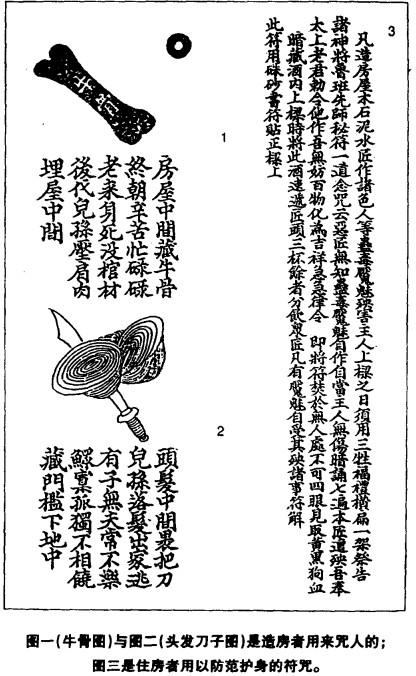 3
凡造房屋木石泥水匠作諸色人等蠱毒魘魅殃害主人上樑之日須用三牲福禮橫扁一架祭告
諸神將魯班先師秘符一道念咒云惡匠無知蠱毒魘魅自作自當主人無傷暗誦七遍本匠遭殃吾奉
太上老君勅令他作吾無妨百物化為吉祥急急律令 即將符焚於無人處不可四眼見取黃黑狗血
暗藏酒內上樑時將此酒連遞匠頭三杯餘者分飲眾匠凡有魘魅自受其殃諸事符解
此符用硃砂書符貼正樑上
牛骨
1
房屋中間藏牛骨
終朝辛苦忙碌碌
老來身死没棺材
後代兒孫壓肩肉
埋屋中間
2
頭髮中間裹把刀
兒孫落髮出家逃
有子無夫常不樂
鰥寡孤獨不相饒
藏門檻下地中
图一(牛骨图)与图二(头发刀子图)是造房者用来咒人的;
图三是住房者用以防范护身的符咒。